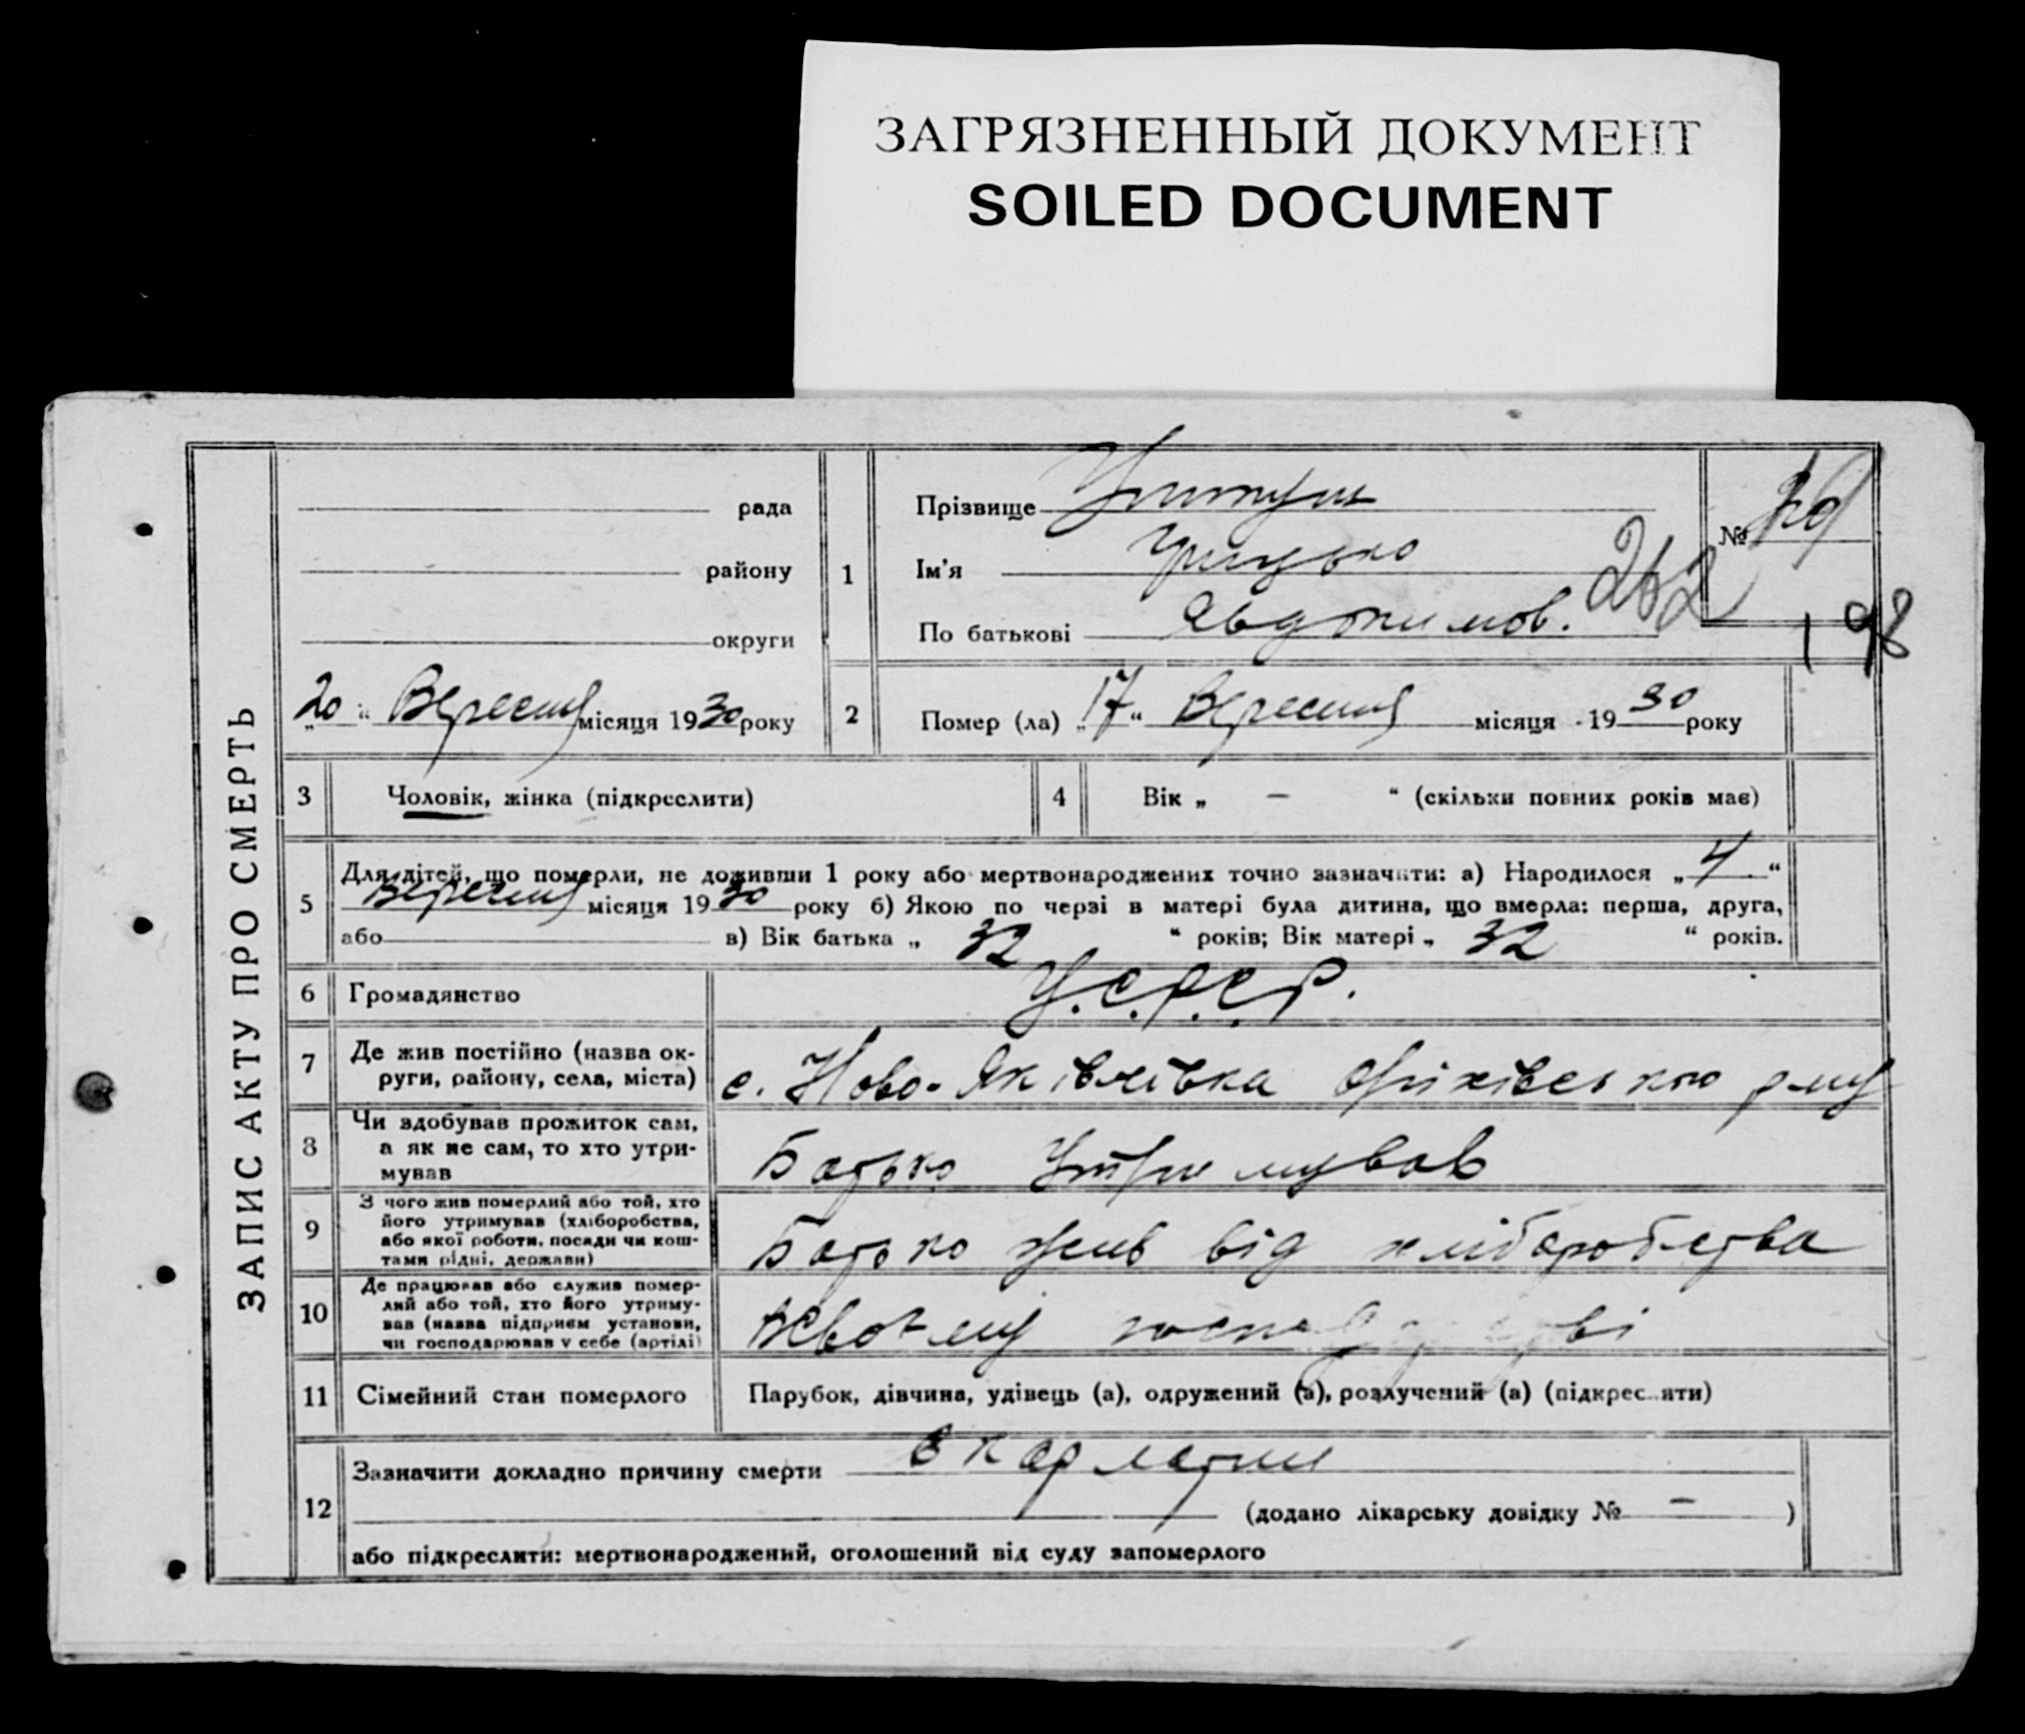 ЗАГРЯЗНЕННЫЙ ДОКУМЕНТ
SOILED DOCUMENT
ЗАПИС АКТУ ПРО СМЕРТЬ
рада
району
округи
„20“ Вересня місяця 1930 року
1
Прізвище
Ім'я Грицько
По батькові Явдокимов.
№
262
198
2 Помер (ла) „17“ Вересня місяця 1930 року
3 Чоловік, жінка (підкреслити)
4 Вік „ — “ (скільки повних років має)
5 Для дітей, що померли, не доживши 1 року або мертвонароджених точно зазначити: а) Народилося „4“
Вересня місяця 1930 року б) Якою по черзі в матері була дитина, що вмерла: перша, друга,
або в) Вік батька „ 32 “ років; Вік матері „ 32 “ років.
6 Громадянство У.С.Р.С.Р.
7 Де жив постійно (назва ок-
руги, району, села, міста) с. Ново-Яківлівка Оріхівського р-ну
8 Чи здобував прожиток сам,
а як не сам, то хто утри-
мував Батько Утримував
9 З чого жив померлий або той, хто
його утримував (хліборобства,
або якої роботи, посади чи кош-
тами рідні, держави) Батько жив від хліборобства
10 Де працював або служив помер-
лий або той, хто його утриму-
вав (назва підприєм установи,
чи господарював у себе (артілі)
11 Сімейний стан померлого Парубок, дівчина, удівець (а), одружений (а), розлучений (а) (підкреслити)
12 Зазначити докладно причину смерти Скарлатин
(додано лікарську довідку № — )
або підкреслити: мертвонароджений, оголошений від суду запомерлого